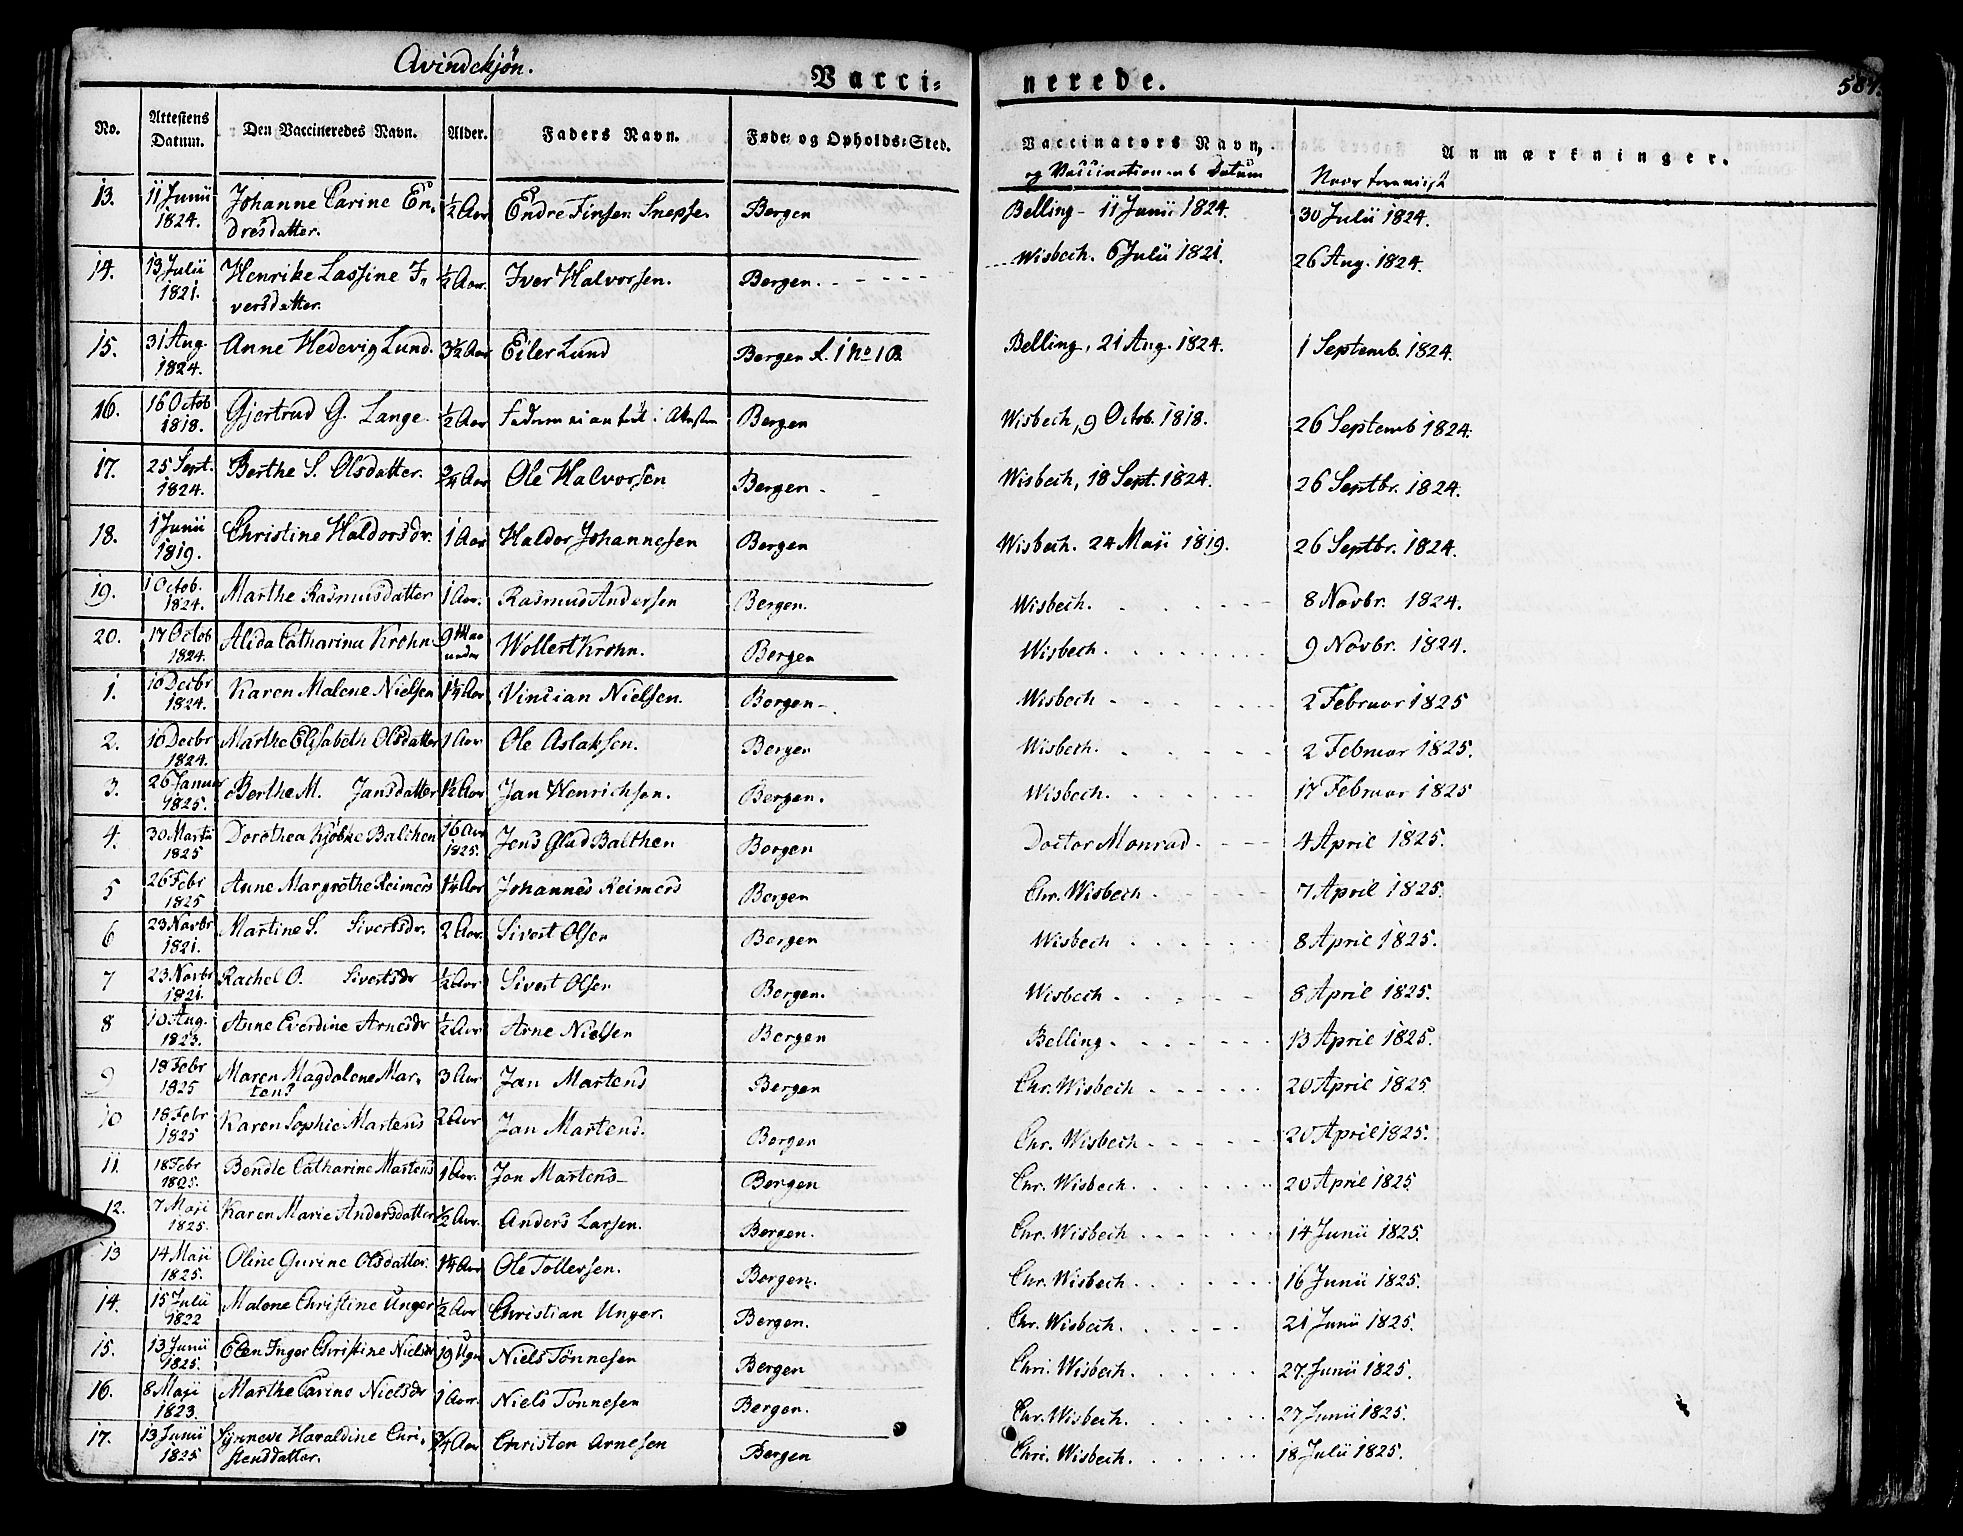 Qvindekjøn.
Vacci- nerede. 587.
No. Attestens Datum. Den Vaccineredes Navn. Alder. Faders Navn. Føde- og Opholds-Sted. Vaccinators Navn, og Vaccinationens Datum Anmærkninger. Naar fremvist
13. 11 Junii 1824. Johanne Carine Endresdatter. ½ Aar Endre Finsen Snepse. Bergen Belling - 11 Junii 1824. 30 Julii 1824.
14. 13 Julii 1821. Henrike Lassine Iversdatter. ½ Aar. Iver Halvorsen. Bergen. Wisbech. 6 Julii 1821. 26 Aug. 1824.
15. 31 Aug. 1824. Anne Hedevig Lund. 3½ Aar Eiler Lund Bergen Belling, 21 Aug. 1824. 1 Septemb. 1824.
16. 16 Octob 1818. Gjertrud G. Lange. ½ Aar Faderen ei anført i Attesten Bergen Wisbech, 9 Octob. 1818. 26 Septemb 1824.
17. 25 Sept. 1824. Berthe S. Olsdatter. ¾ Aar Ole Halvorsen Bergen - Wisbech, 18 Sept. 1824. 26 Septbr. 1824.
18. 1 Junii 1819. Christine Haldorsdr. 1 Aar Haldor Johannesen Bergen Wisbech. 24 Maii 1819. 26 Septbr. 1824.
19. 1 Octob. 1824. Marthe Rasmusdatter 1 Aar. Rasmus Andersen Bergen. Wisbech. 8 Novbr. 1824.
20. 17 Octob 1824. Alida Catharina Krohn. 9 Maaneder Wollert Krohn. Bergen Wisbech. 9 Novbr. 1824.
1. 10 Decbr 1824. Karen Malene Nielsen 1¼ Aar Vincian Nielsen. Bergen -. Wisbech 2 Februar 1825
2. 10 Decbr 1824. Marthe Elisabeth Olsdatter 1 Aar Ole Aslaksen. Bergen Wisbech. 2 Februar 1825.
3. 26 Januar 1825. Berthe M. Jansdatter 1½ Aar Jan Henrichsen. Bergen. Wisbech. 17 Februar 1825
4. 30 Martii 1825 Dorothea Kjøbke Balchen 16 Aar 1825. Jens Glad Balthen Bergen Doctor Monrad 4 April 1825.
5 26 Febr 1825 Anne Margrethe Reimers 1¼ Aar Johannes Reimers Bergen Chr. Wisbech 7 April 1825.
6 23 Novbr 1821. Martine S. Sivertsdr. 2 Aar. Sivert Olsen Bergen Wisbech 8 April 1825.
7 23 Novbr 1821. Rachel O. Sivertsdr ½ Aar Sivert Olsen Bergen. Wisbech 8 April 1825.
8 10 Aug. 1823. Anne Everdine Arnesdr ½ Aar Arne Nielsen Bergen Belling. 13 April 1825.
9 18 Febr 1825 Maren Magdalene Martens 3 Aar Jan Martens Bergen Chr. Wisbech 20 April 1825.
10 18 Febr 1825 Karen Sophie Martens 2 Aar Jan Martens. Bergen Chr. Wisbech 20 April 1825.
11. 18 Febr 1825. Bendte Catharine Martens 1 Aar. Jan Martens - Bergen Chr. Wisbech. 20 April 1825
12. 7 Maji 1825. Karen Marie Andersdatter ½ Aar. Anders Larsen. Bergen. Chr. Wisbech 14 Junii 1825.
13 14 Maji 1825. Oline Gurine Olsdatter. 1¼ Aar Ole Tollersen. Bergen. Chr. Wisbech. 16 Junii 1825.
14. 15 Julii 1822 Malene Christine Unger ½ Aar Christian Unger. Bergen. Chr. Wisbech. 21 Junii 1825.
15. 13 Junii 1825. Elen Inger Christine Nielsdr 19 Uger Niels Tönnesen Bergen Chri. Wisbech. 27. Junii 1825.
16. 8 Maji 1823. Marthe Carine Nielsdr 1 Aar. Niels Tönnesen Bergen. Chr. Wisbech. 27 Junii 1825.
17. 13 Junii 1825 Synneve Haraldine Christensdatter. ¾ Aar Christen Arnesen Bergen Chri. Wisbech. 18 Julii 1825.